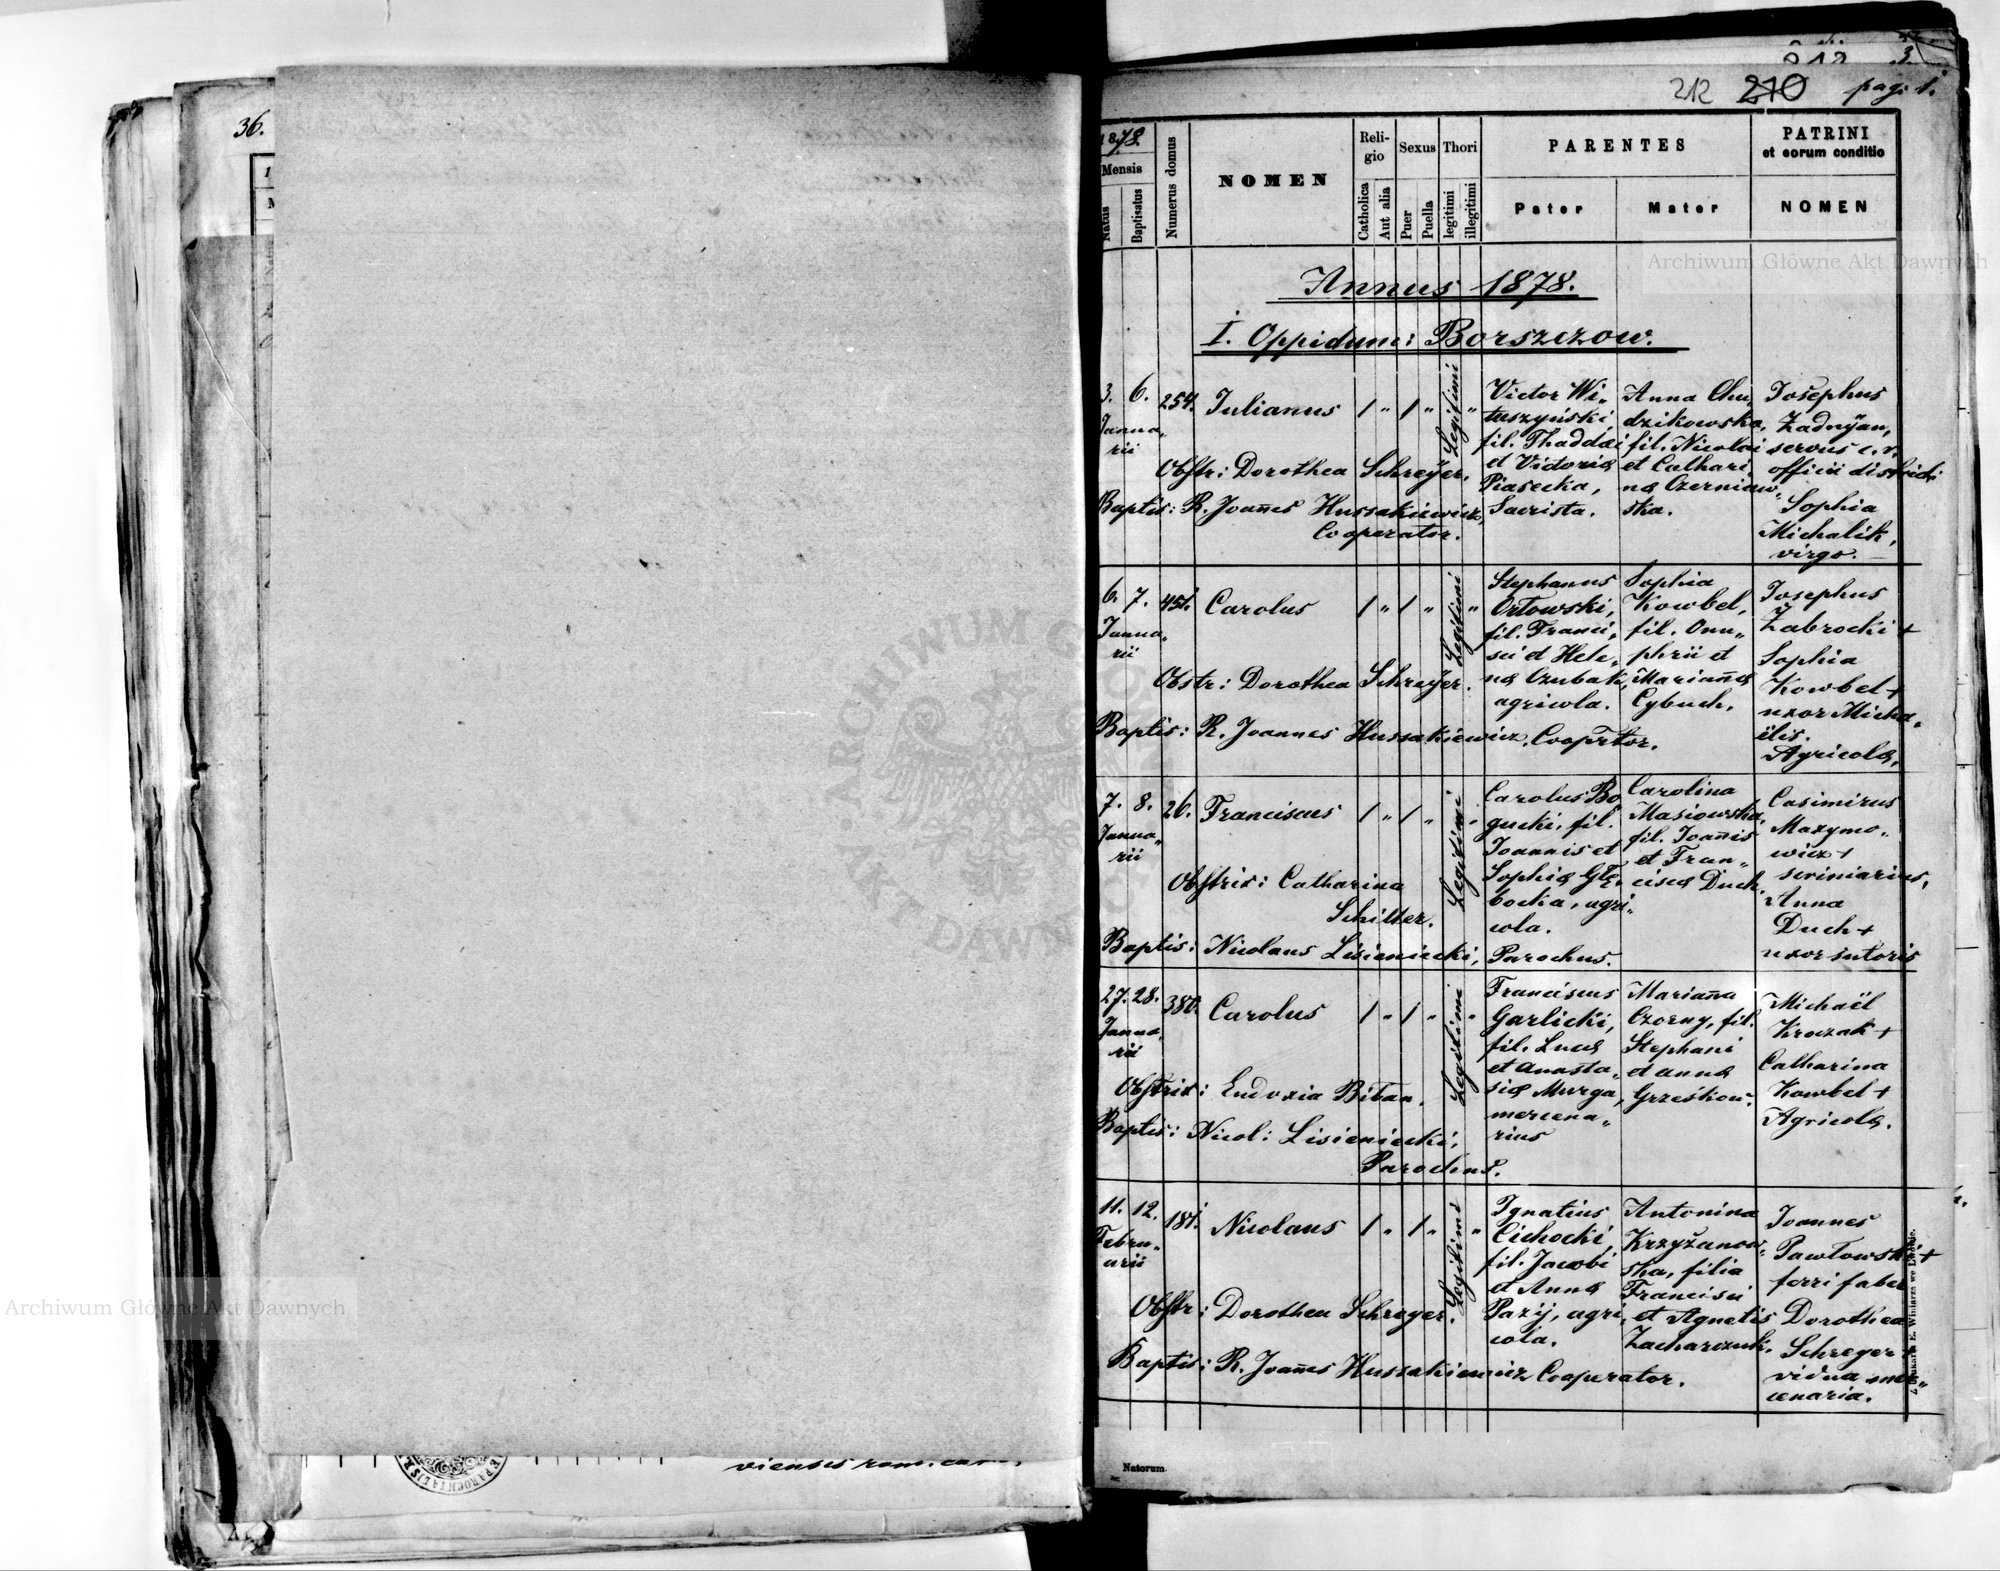 36.
212 210 pag. 1.
1878.
Mensis
Natus
Baptisatus
Numerus domus
NOMEN
Religio
Catholica
Aut alia
Sexus
Puer
Puella
Thori
legitimi
illegitimi
PARENTES
Pater
Mater
PATRINI
et eorum conditio
NOMEN
Archiwum Główne Akt Dawnych
Annus 1878.
I. Oppidum: Borszczow.
3. 6. 254. Julianus / " / " Legitimi "
Janua„
rii
Obstr: Dorothea Schreÿer.
Baptis: R. Joañes Hussakiewicz,
Cooperator.
Victor Wi„
tuszyński,
fil. Thaddæi
et Victoriæ
Piasecka,
Sacrista.
Anna Chu„
dzikowska,
fil. Nicolai
et Cathari„
næ Czerniaw„
ska.
Josephus
Zadnÿan,
servus c. r.
officii districti
Sophia
Michalik,
virgo.
6. 7. 451. Carolus / " / " Legitimi "
Janua„
rii
Obstr: Dorothea Schreÿer.
Baptis: R. Joannes Hussakiewicz, Cooprtor.
Stephanus
Orłowski,
fil. Franci„
sci et Hele„
næ Czubak,
agricola.
Sophia
Kowbel,
fil. Onu„
phrii et
Mariañæ
Cybuch.
Josephus
Zabrocki +
Sophia
Kowbel +
uxor Micha„
elis.
Agricolæ.
7. 8. 26. Franciscus / " / " Legitimi "
Janua„
rii
Obstrix: Catharina
Schiller.
Baptis: Nicolaus Lisieniecki, Parochus.
Carolus Bo
gucki, fil.
Joannis et
Sophiæ Głę„
bocka, agri„
cola.
Carolina
Masiowska,
fil. Joañis
et Fran„
ciscæ Duch.
Casimirus
Maxymo„
wicz +
scriniarius,
Anna
Duch +
uxor sutoris
27. 28. 380. Carolus / " / " Legitimi "
Janua„
rii
Obstrix: Eudoxia Biban.
Baptis: Nicol: Lisieniecki,
Parochus.
Franciscus
Garlicki,
fil. Lucæ
et Anasta„
siæ Murga,
mercena„
rius
Mariaña
Czorny, fil.
Stephani
et Annæ
Grześków.
Michaël
Kroczak +
Catharina
Kowbel +
Agricolæ.
11. 12. 181. Nicolaus / " / " Legitimi "
Febru„
arii
Obstr: Dorothea Schreyer.
Baptis: R. Joañes Hussakiewicz Cooperator.
Ignatius
Cichocki,
fil. Jacobi
et Annæ
Pazij, agri„
cola.
Antonina
Krzyżanow„
ska, filia
Francisci
et Agnetis
Zacharczuk.
Joannes
Pawłowski +
ferri faber
Dorothea
Schreyer +
vidua mer„
cenaria.
Z Drukarni E. Winiarza we Lwowie.
Natorum
ARCHIWUM GŁÓWNE AKT DAWNYCH
Archiwum Główne Akt Dawnych